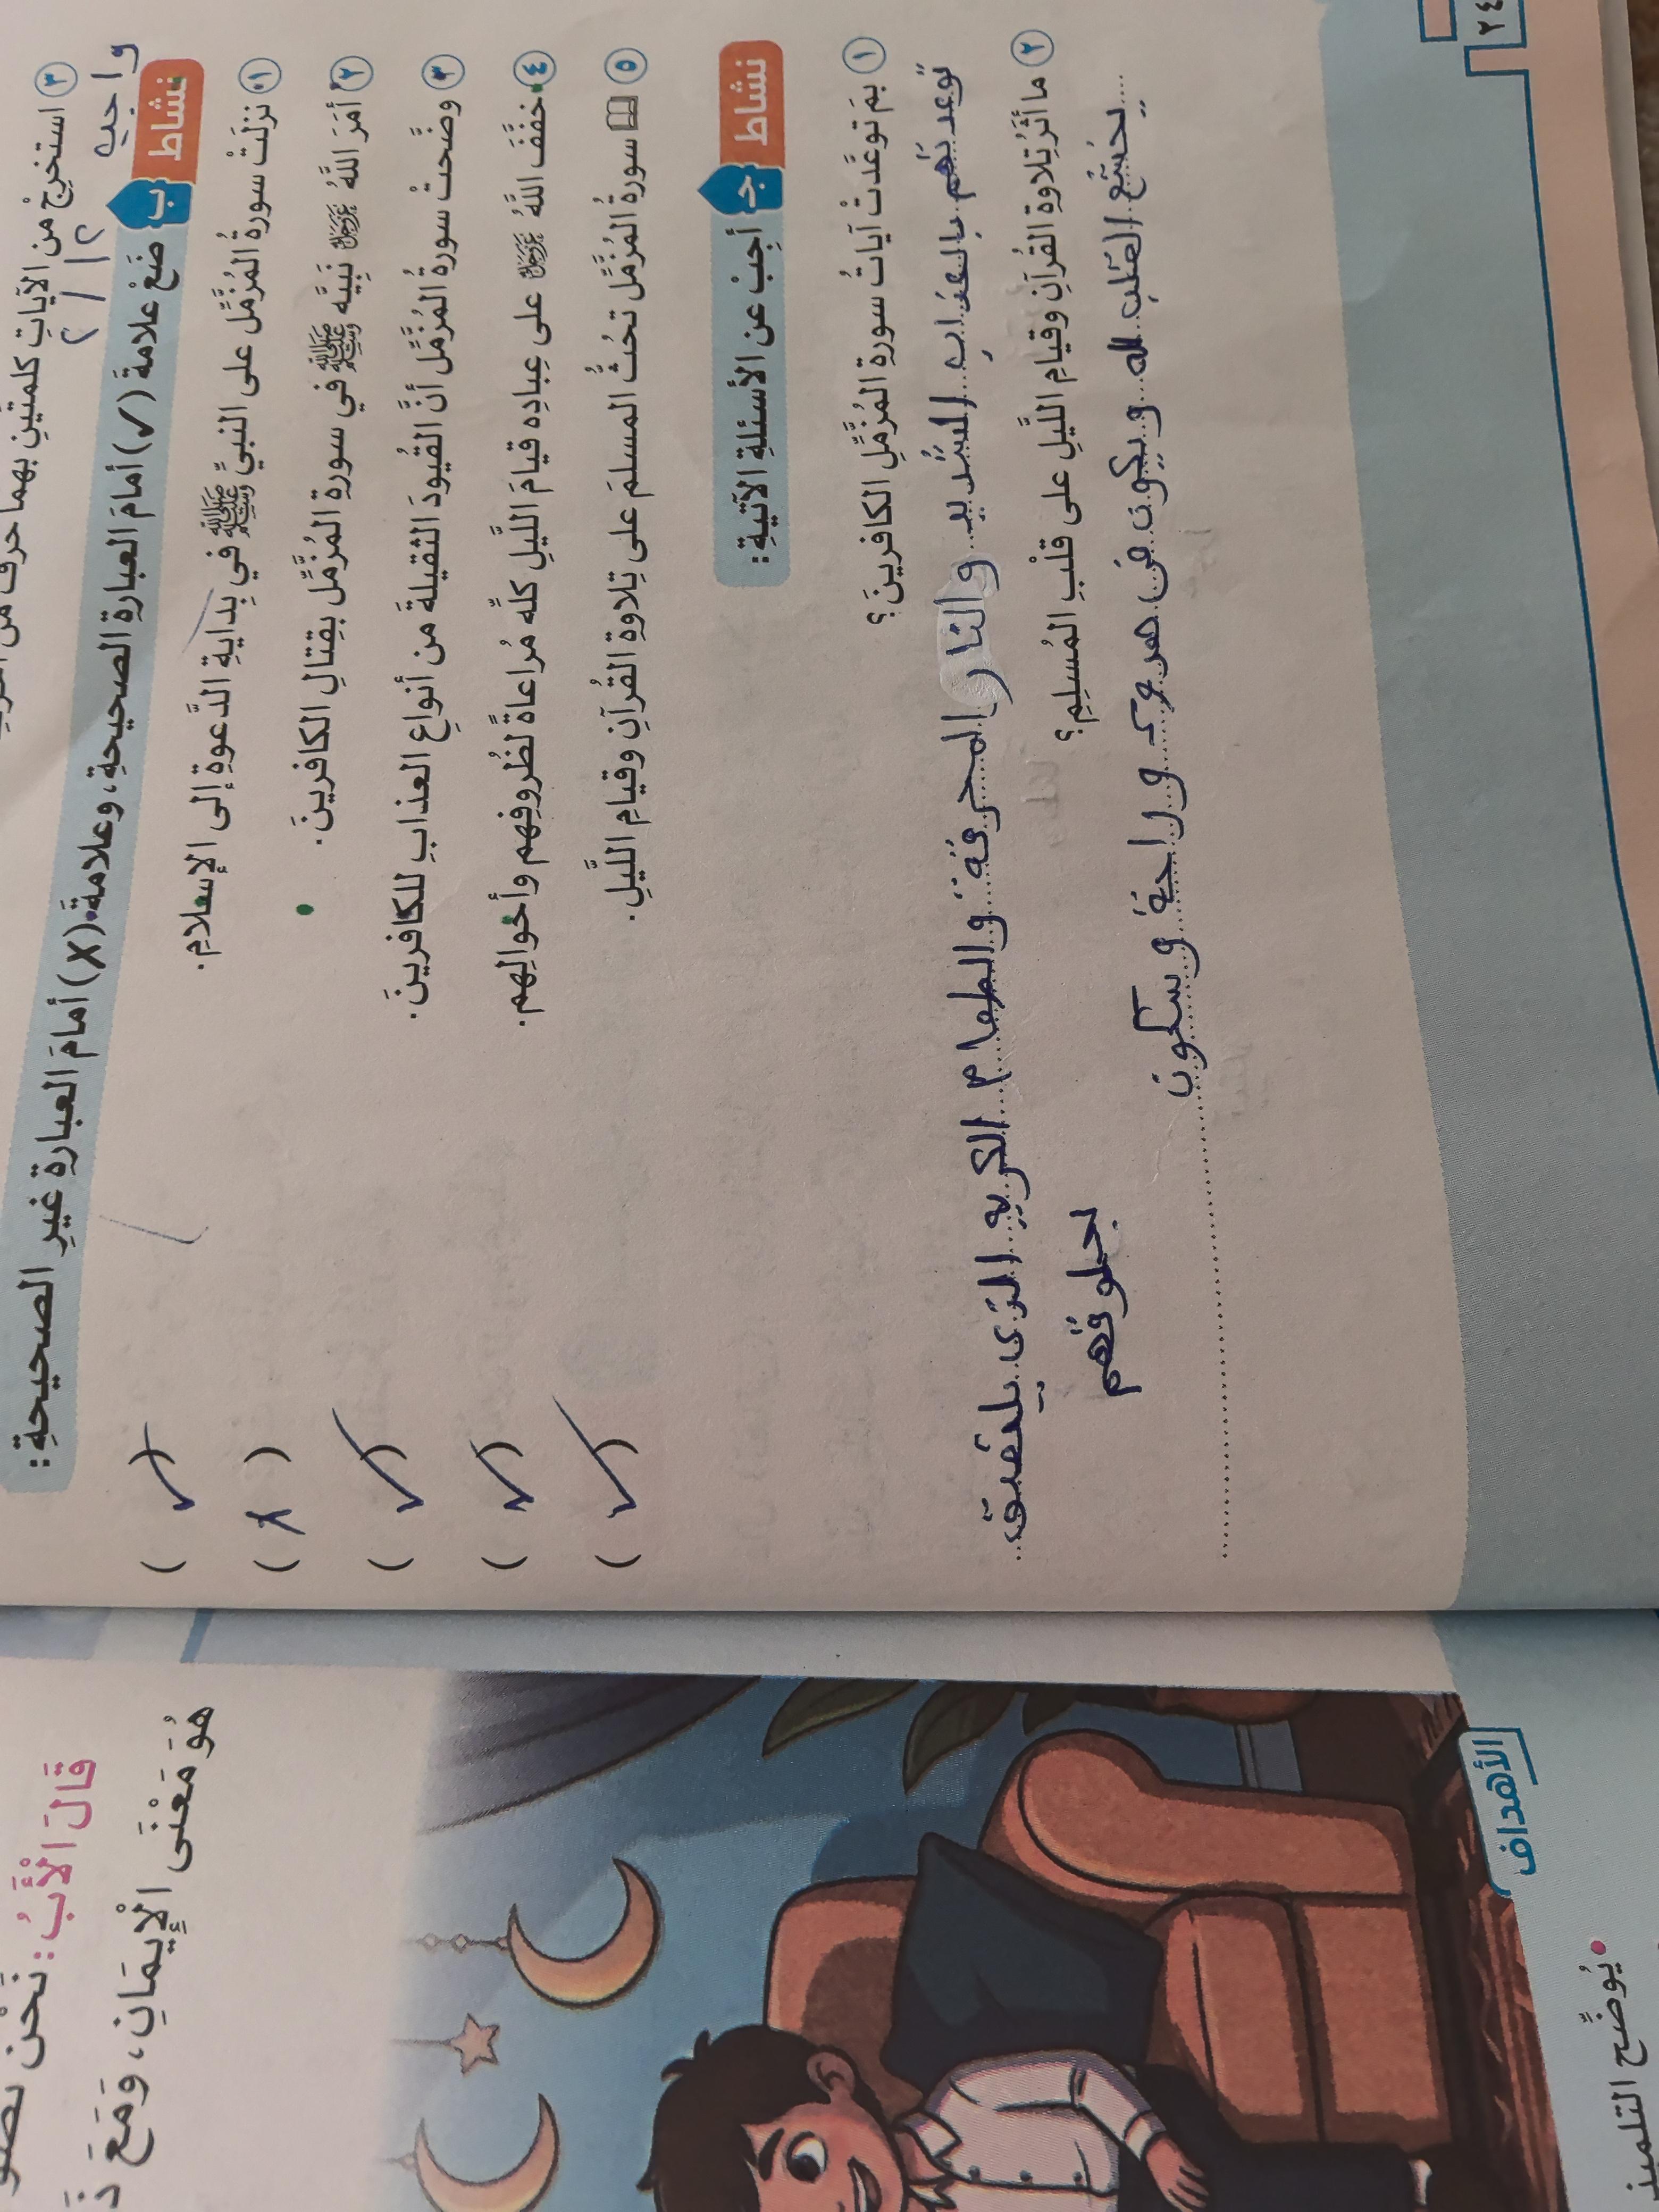 ٣ استخرجْ من الآياتِ كلمتَينِ بهما حرف من
واجب ٢ / ١٢
نشاط ب ضَعْ علامةَ (✓) أمامَ العبارةِ الصحيحةِ، وعلامةَ (X) أمامَ العبارةِ غيرِ الصحيحةِ:
١ نزلَتْ سورةُ المُزَّمِّل على النبيِّ ﷺ في بدايةِ الدَّعوةِ إلى الإسلامِ. ( ✓ )
٢ أمَرَ اللَّهُ ﷻ نَبِيَّه ﷺ في سورةِ المُزَّمِّل بقِتالِ الكافرينَ. ( X )
٣ وضَّحتْ سورةُ المُزَّمِّل أنَّ القُيودَ الثقيلةَ من أنواعِ العذابِ للكافرينَ. ( ✓ )
٤ خفَّفَ اللَّهُ ﷻ على عِبادِه قيامَ اللَّيلِ كلَّه مُراعاةً لظُروفِهم وأحوالِهم. ( ✓ )
٥ سورةُ المُزَّمِّل تحُثُّ المسلمَ على تِلاوةِ القُرآنِ وقيامِ اللَّيلِ. ( ✓ )
نشاط جـ أجِبْ عن الأسئلةِ الآتيةِ:
١ بمَ توعَّدَتْ آياتُ سورةِ المُزَّمِّلِ الكافرينَ؟
توعدتهم بالعذاب الشديد والنار المحرقة والطعام الكريه الذى يلتصق
بحلوقهم
٢ ما أثَرُ تِلاوةِ القُرآنِ وقيامِ اللَّيلِ على قلْبِ المُسلِمِ؟
يخشع القلب لله ويكون فى هدوء وراحة وسكون
٢٤
قَالَ الْأَبُ: نَحْن
هُوَ مَعْنَى الْإِيمَانِ، وَمَعَ
الأهداف
• يُوضِّح التلميذ